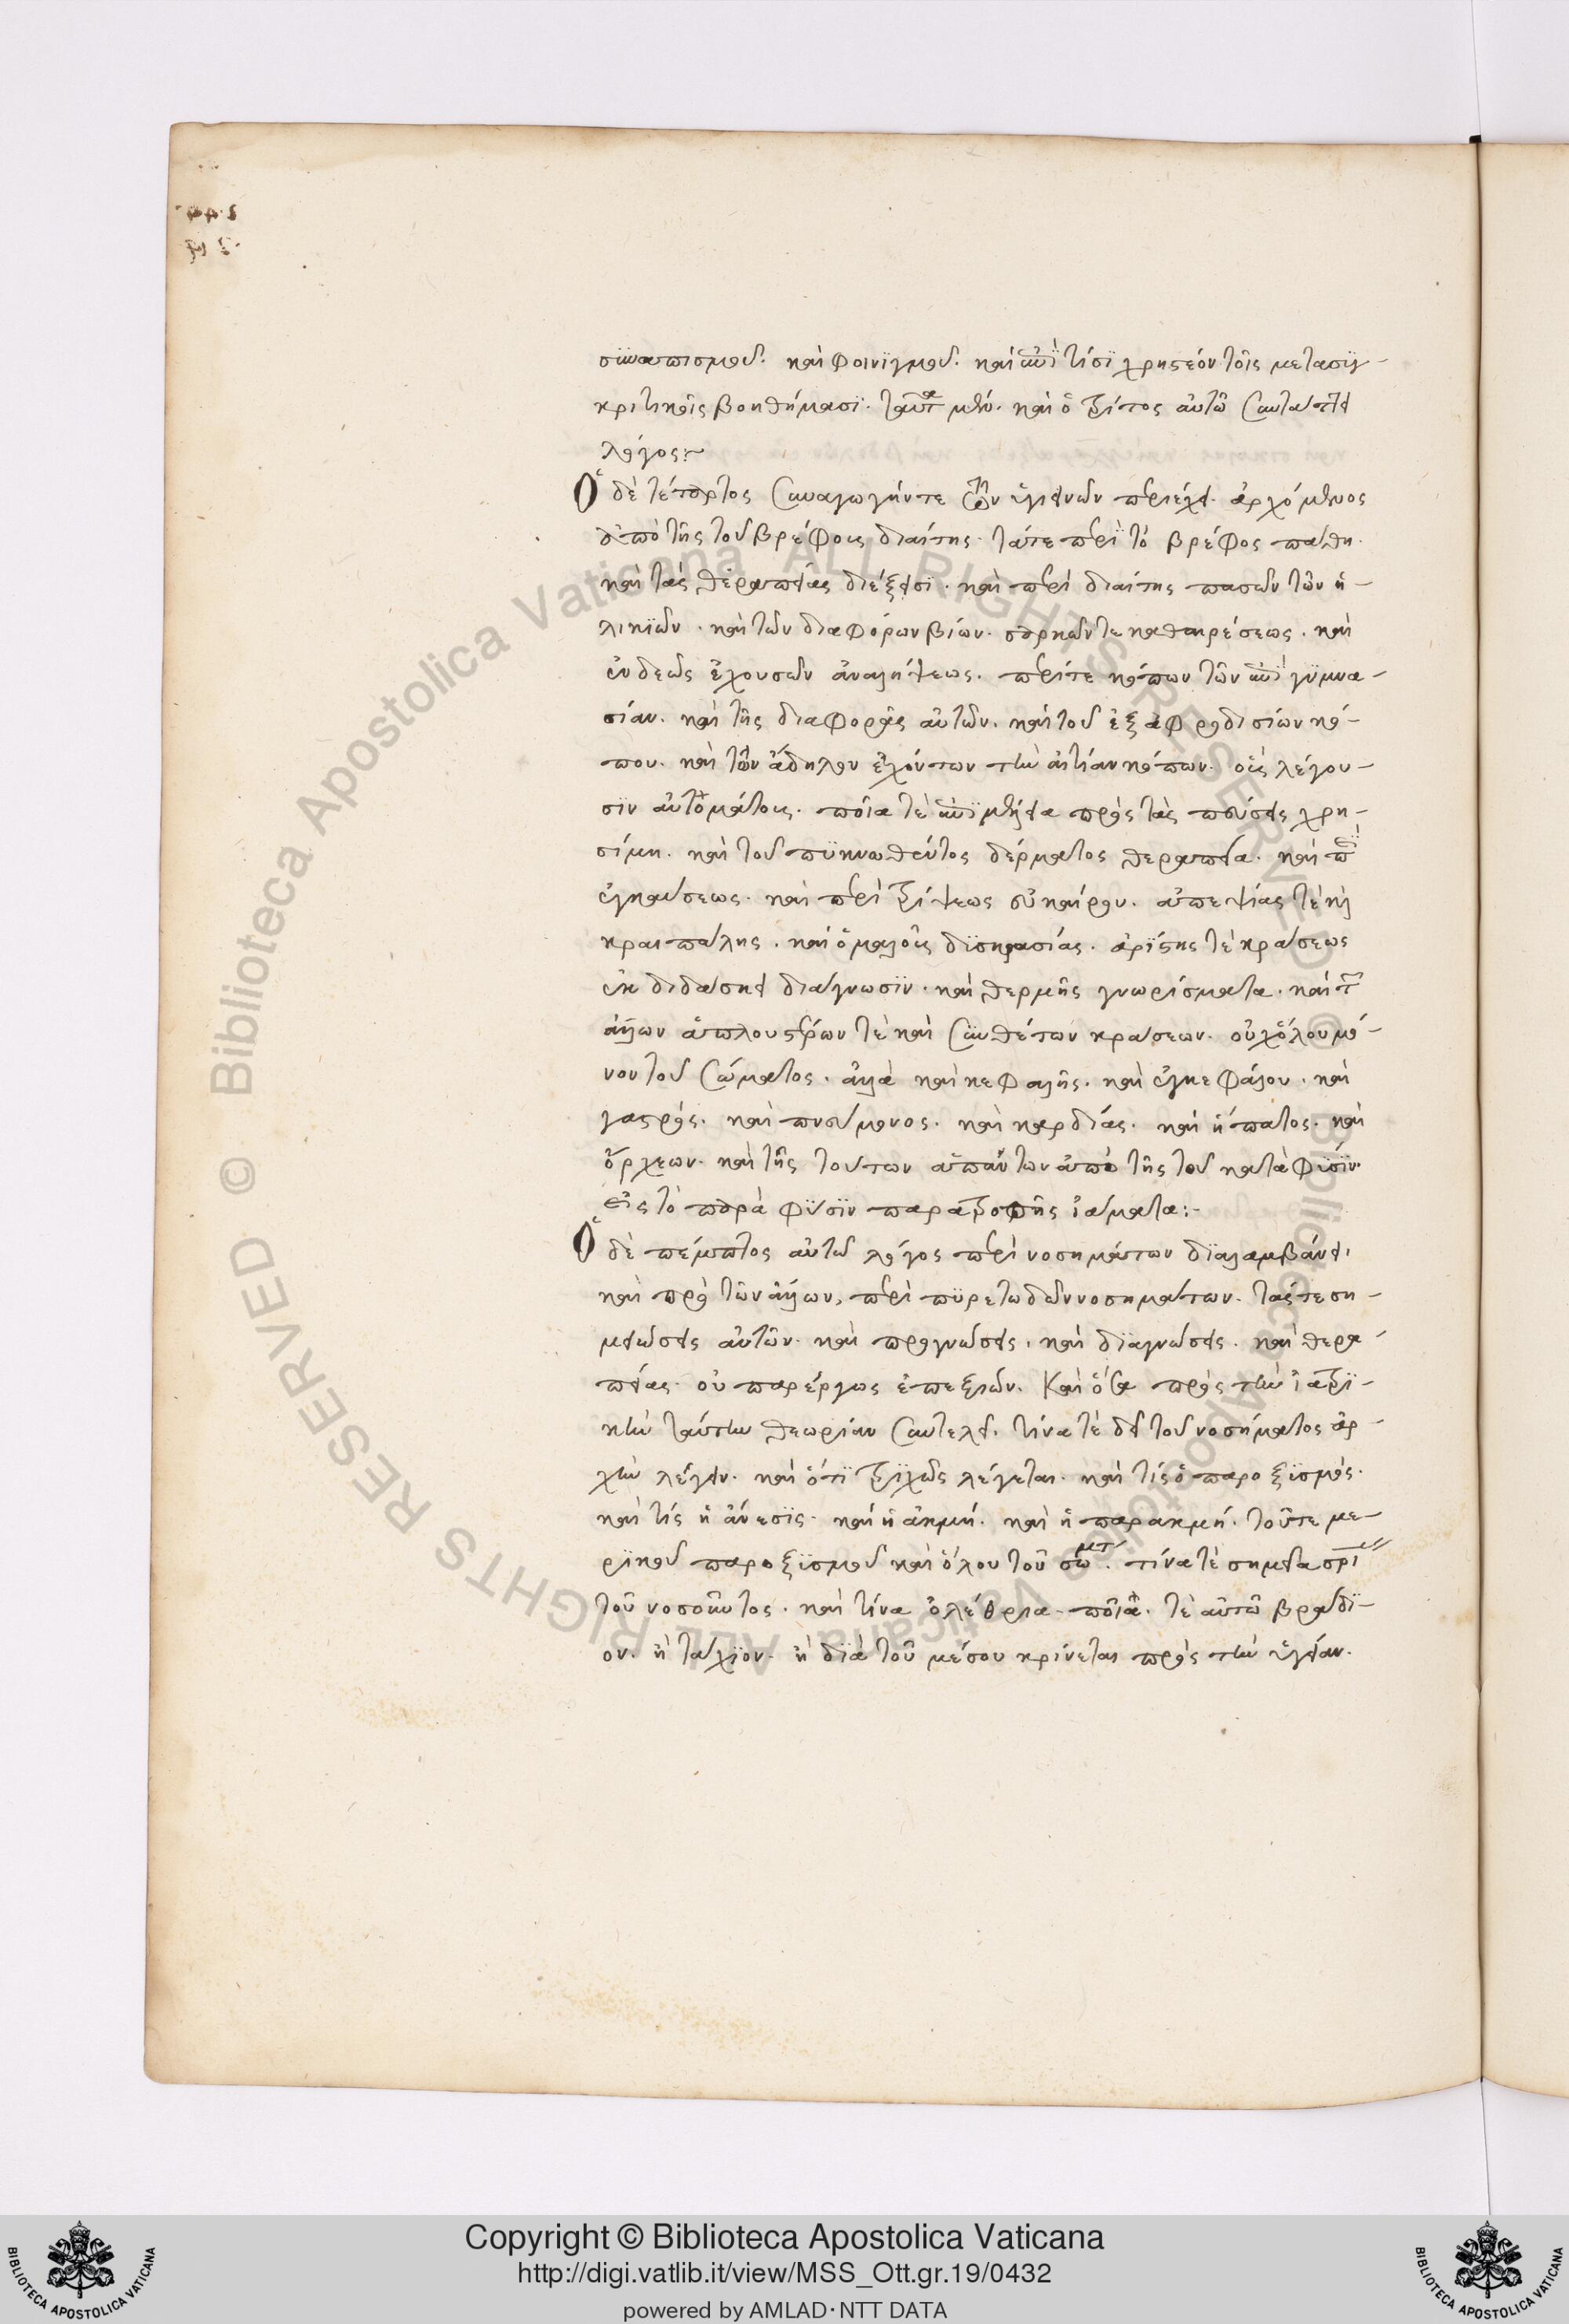 σϊναπισμοῦ. καὶ φοινϊγμοῦ. καὶ ἐπὶ τίσϊ χρηστέον τοῖς μετασϊγ-
κριτικοῖς βοηθήμασϊ. ταῦτα μὲν. καὶ ὁ τρίτος αὐτῶ συντάττει
λόγος:~
Ὁ δὲ τέταρτος συναγωγήν τε τῶν ὑγιεινῶν περιέχει. ἀρχόμενος
ἀπὸ τῆς τοῦ βρέφους διαίτης. τάτε περὶ τὸ βρέφος πάθη.
καὶ τὰς θεραπείας διέξεισϊ. καὶ περὶ διαίτης πασῶν τῶν ἡ-
λικϊῶν. καὶ τῶν διαφόρων βίων. σαρκῶν τε καθαιρέσεως. καὶ
ἐνδεῶς ἐχουσῶν ἀναλήψεως. περίτε κόπων τῶν ἐπὶ γϋμνα-
σίαν. καὶ τῆς διαφορᾶς αὐτῶν. καὶ τοῦ ἐξ ἀφροδισίων κό-
που. καὶ τῶν ἄδηλον ἐχόντων τὴν αἰτίαν κόπων. οὓς λέγου-
σϊν αὐτομάτους. ποῖα τὲ ἐπιμήνια πρὸς τὰς πτύσεις χρη-
σίμη. καὶ τοῦ πϋκνωθέντος δέρματος θεραπεία. καὶ περὶ
ἐγκαύσεως. καὶ περὶ τρίψεως οὐ καίρου. ἀπεψίας τὲ καὶ
κραιπάλης. καὶ ὁμαλοῦς δϊσκρασίας. ἀρίστης τὲ κράσεως
ἐκδιδάσκει διάγνωσϊν. καὶ θερμῆς γνωρίσματα. καὶ τῶν
ἄλλων ἁπλουστέρων τὲ καὶ συνθέτων κράσεων. οὐχ ὅλου μό-
νου τοῦ σώματος. ἀλλὰ καὶ κεφαλῆς. καὶ ἐγκεφάλου. καὶ
γαστρός. καὶ πνεύμονος. καὶ καρδίας. καὶ ἥπατος. καὶ
ὄρχεων. καὶ τῆς τούτων ἁπάντων ἀπὸ τῆς τοῦ κατὰ φϋσϊν
εἰς τὸ παρὰ φϋσϊν παρατροπῆς ἰάματα:-
Ὁ δὲ πέμπτος αὐτοῦ λόγος περὶ νοσημάτων διαλαμβάνει,
καὶ πρὸ τῶν ἄλλων, περὶ πϋρετωδῶν νοσημάτων. τάς τε ση-
μειώσεις αὐτῶν. καὶ προγνώσεις. καὶ δϊαγνώσεις. καὶ θερα-
πείας οὐ παρέργως ἐπεξιών. καὶ ὅσα πρὸς τὴν ἰατρϊ-
κὴν ταύτην θεωρίαν συντελεῖ. τίνα τὲ δεῖ τοῦ νοσήματος ἀρ-
χὴν λέγειν. καὶ ὅτϊ τρϊχῶς λέγεται. καὶ τίς ὁ παροξϋσμός.
καὶ τίς ἡ ἄνεσϊς. καὶ ἡ ἀκμή. καὶ ἡ παρακμή. τοῦτε με-
ρϊκοῦ παροξϋσμοῦ καὶ ὅλου τοῦ σώματ. τίνα τὲ σημεῖα σρί
τοῦ νοσοῦντος. καὶ τίνα ὀλέθρια. ποῖα. τὲ αὐτῶ βραδϊ-
ον. ἢ τάχϊον. ἢ δϊὰ τοῦ μέσου κρίνεται πρὸς τὴν ὑγείαν.
Copyright © Biblioteca Apostolica Vaticana
http://digi.vatlib.it/view/MSS_Ott.gr.19/0432
powered by AMLAD·NTT DATA